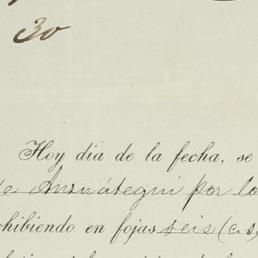 30
Hoy dia de la fecha, se
de Amunátegui por lo
hibiendo en fojas seis (c. s